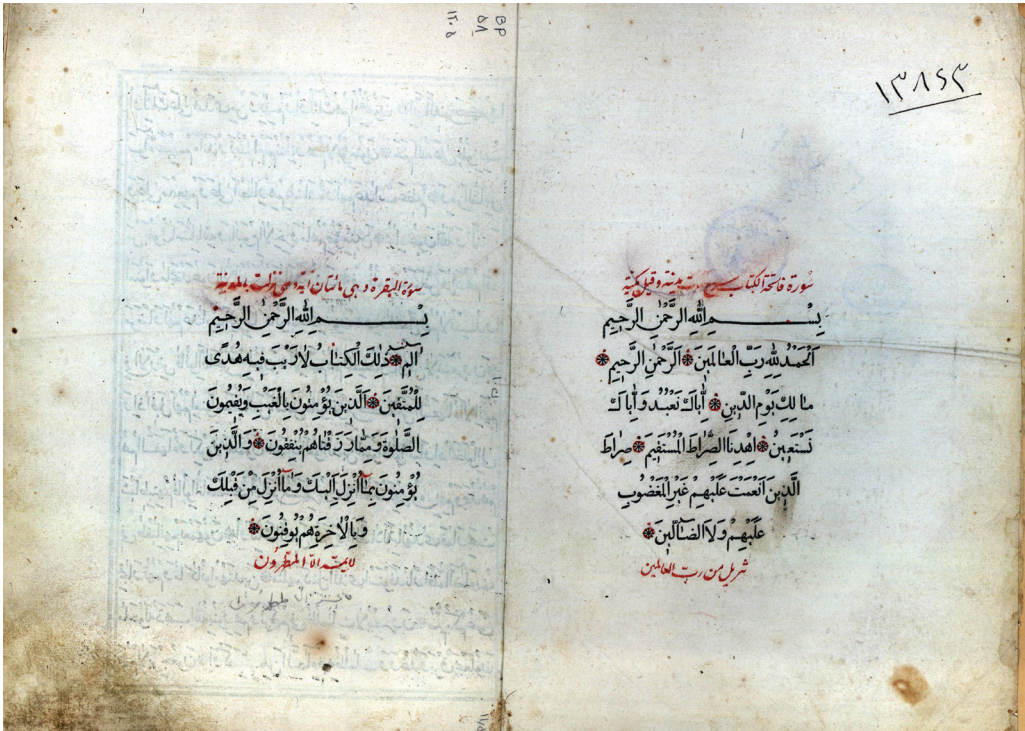 ١٣٨٤٣
سورة فاتحة الكتاب سبع مدنية وقيل مكية
بِسْمِ اللّٰهِ الرَّحْمٰنِ الرَّحِيمِ
اَلْحَمْدُ لِلّٰهِ رَبِّ الْعَالَمِينَ اَلرَّحْمٰنِ الرَّحِيمِ
مَالِكِ يَوْمِ الدِّينِ اِيَّاكَ نَعْبُدُ وَاِيَّاكَ
نَسْتَعِينُ اِهْدِنَا الصِّرَاطَ الْمُسْتَقِيمَ صِرَاطَ
الَّذِينَ اَنْعَمْتَ عَلَيْهِمْ غَيْرِ الْمَغْضُوبِ
عَلَيْهِمْ وَلَا الضَّالِّينَ
تنزيل من رب العالمين
BP
٥٨
١٢٠٥
سورة البقرة وهي مائتان آية وهي نزلت بالمدينة
بِسْمِ اللّٰهِ الرَّحْمٰنِ الرَّحِيمِ
الٓمٓ ذٰلِكَ الْكِتَابُ لَا رَيْبَ فِيهِ هُدًى
لِلْمُتَّقِينَ اَلَّذِينَ يُؤْمِنُونَ بِالْغَيْبِ وَيُقِيمُونَ
الصَّلٰوةَ وَمِمَّا رَزَقْنَاهُمْ يُنْفِقُونَ وَالَّذِينَ
يُؤْمِنُونَ بِمَٓا اُنْزِلَ اِلَيْكَ وَمَٓا اُنْزِلَ مِنْ قَبْلِكَ
وَبِالْاٰخِرَةِ هُمْ يُوقِنُونَ
لا يمسه الا المطهرون